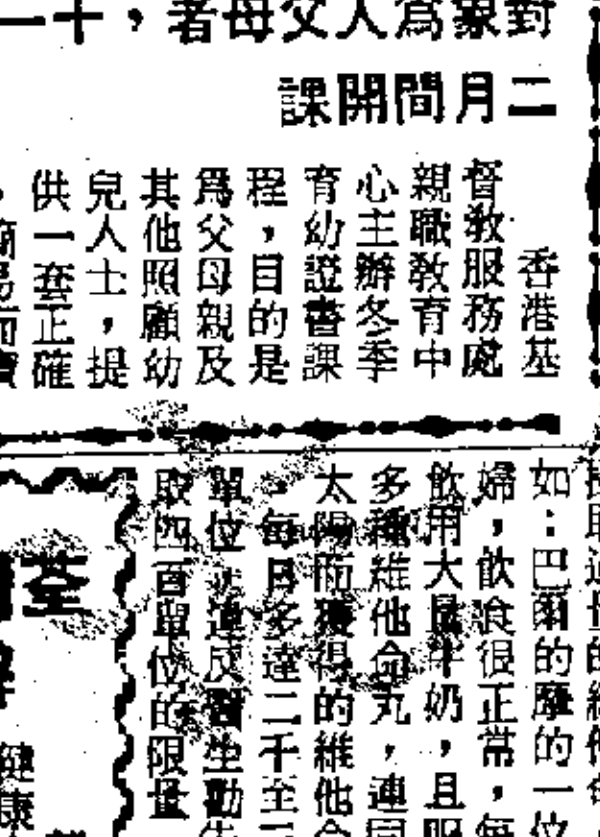 對象為人父母者，十一
二月間開課
香港基
督教服務處
親職教育中
心主辦冬季
育幼證書課
程，目的是
為父母親及
其他照顧幼
兒人士，提
供一套正確
簡易而實
如：巴爾的摩的一位
婦，飲食很正常，每
飲用大量牛奶，且服
多種維他命丸，連同
太陽而獲得的維他命
，每日多達二千至
單位，違反醫生勸告
取四百單位的限量
荃
健康